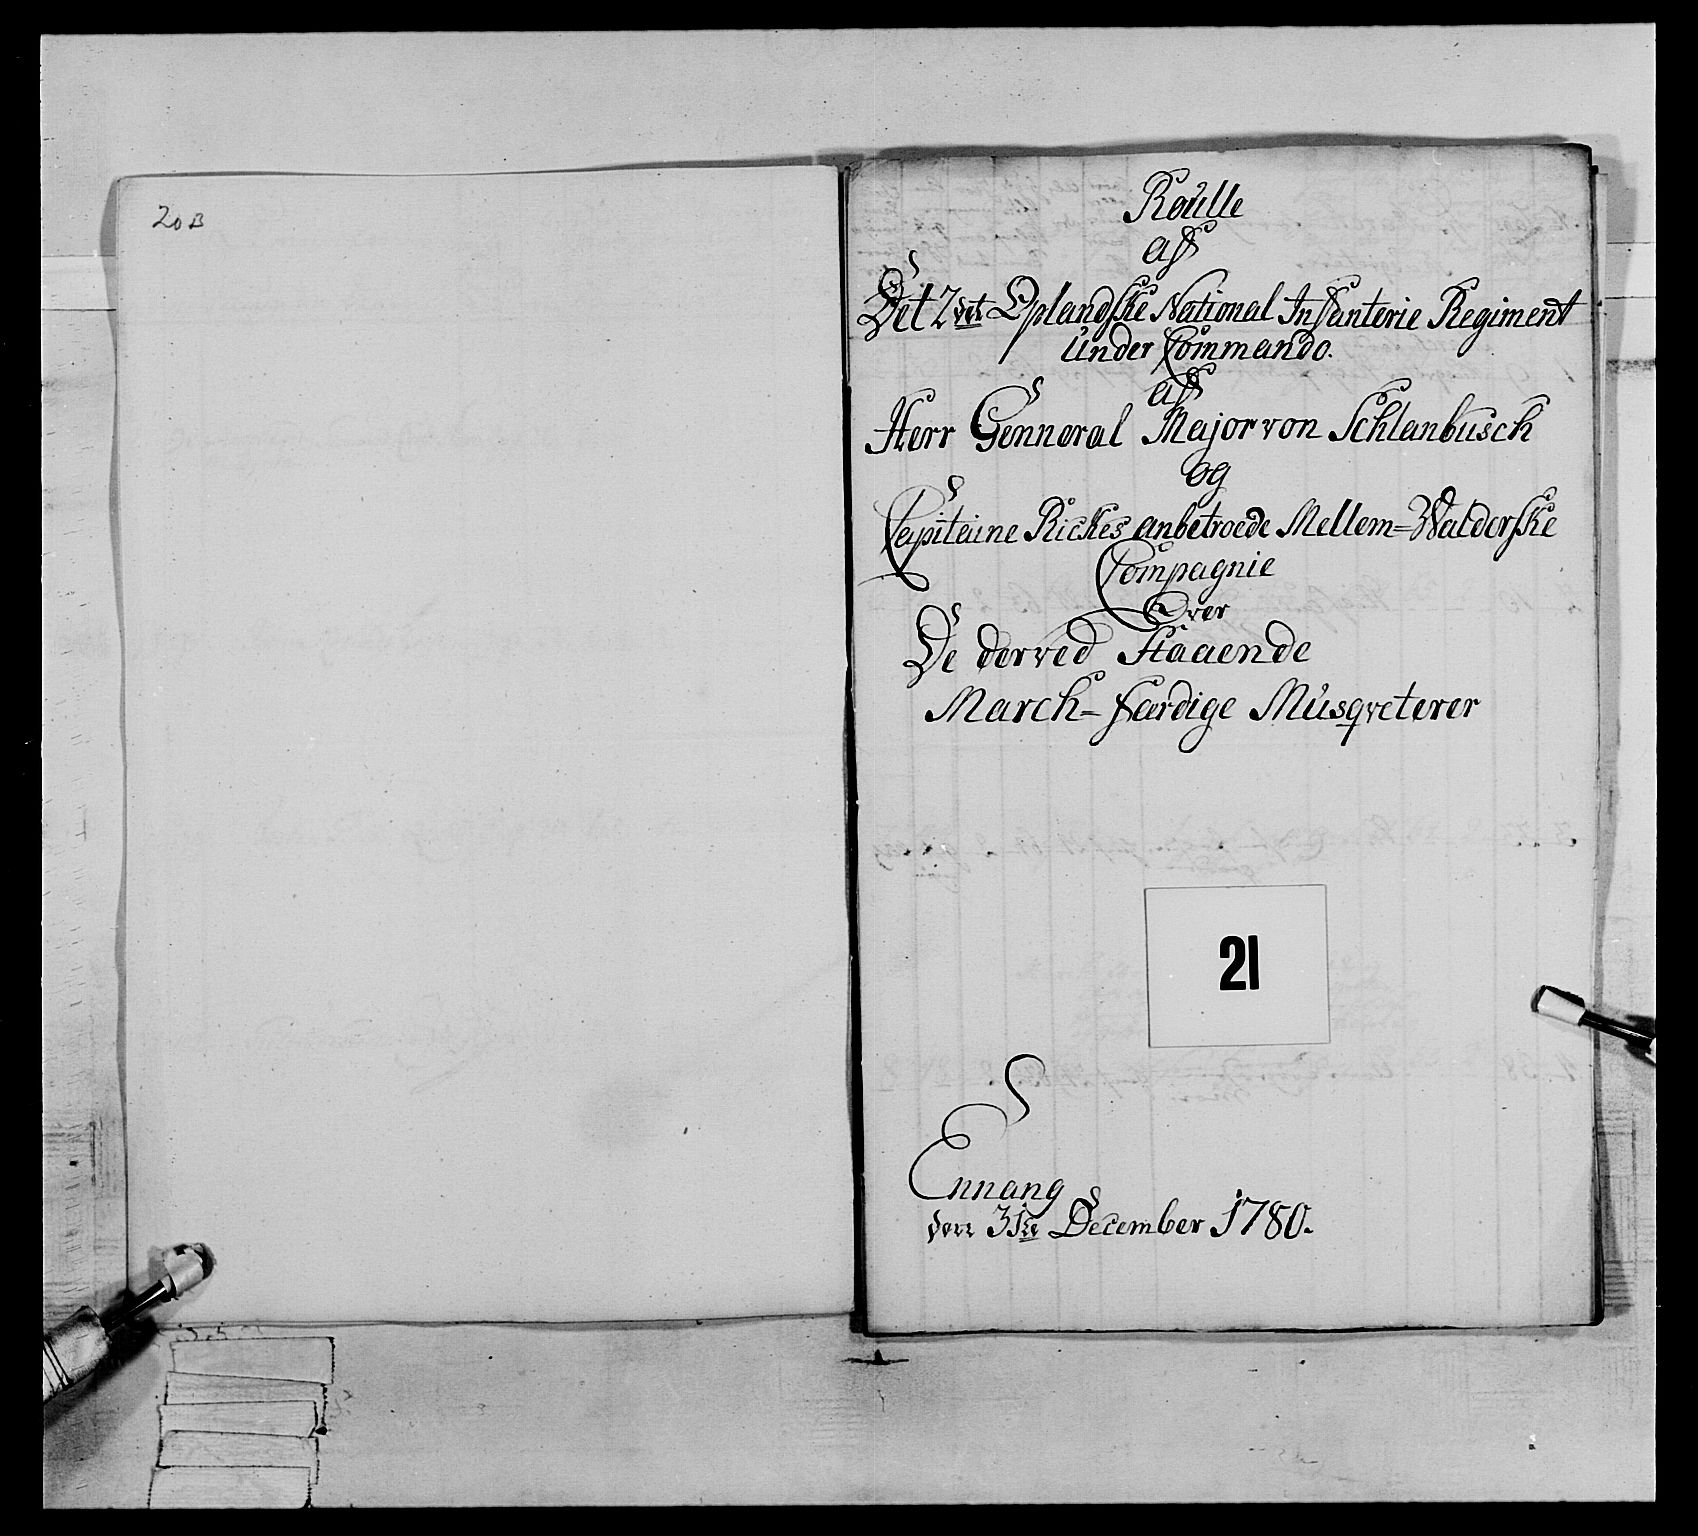 20B
Roulle
aff
Det 2det Oplandske National Infanterie Regiment
Under Commando.
aff
Herr Genneral Major von Schlanbusch
og
Capitaine Rickes anbetroede Mellem=Walderske
Compagnie
Over
De derved Staaende
March-færdige Musqveterer
21
Ennang
den 31te December 1780.